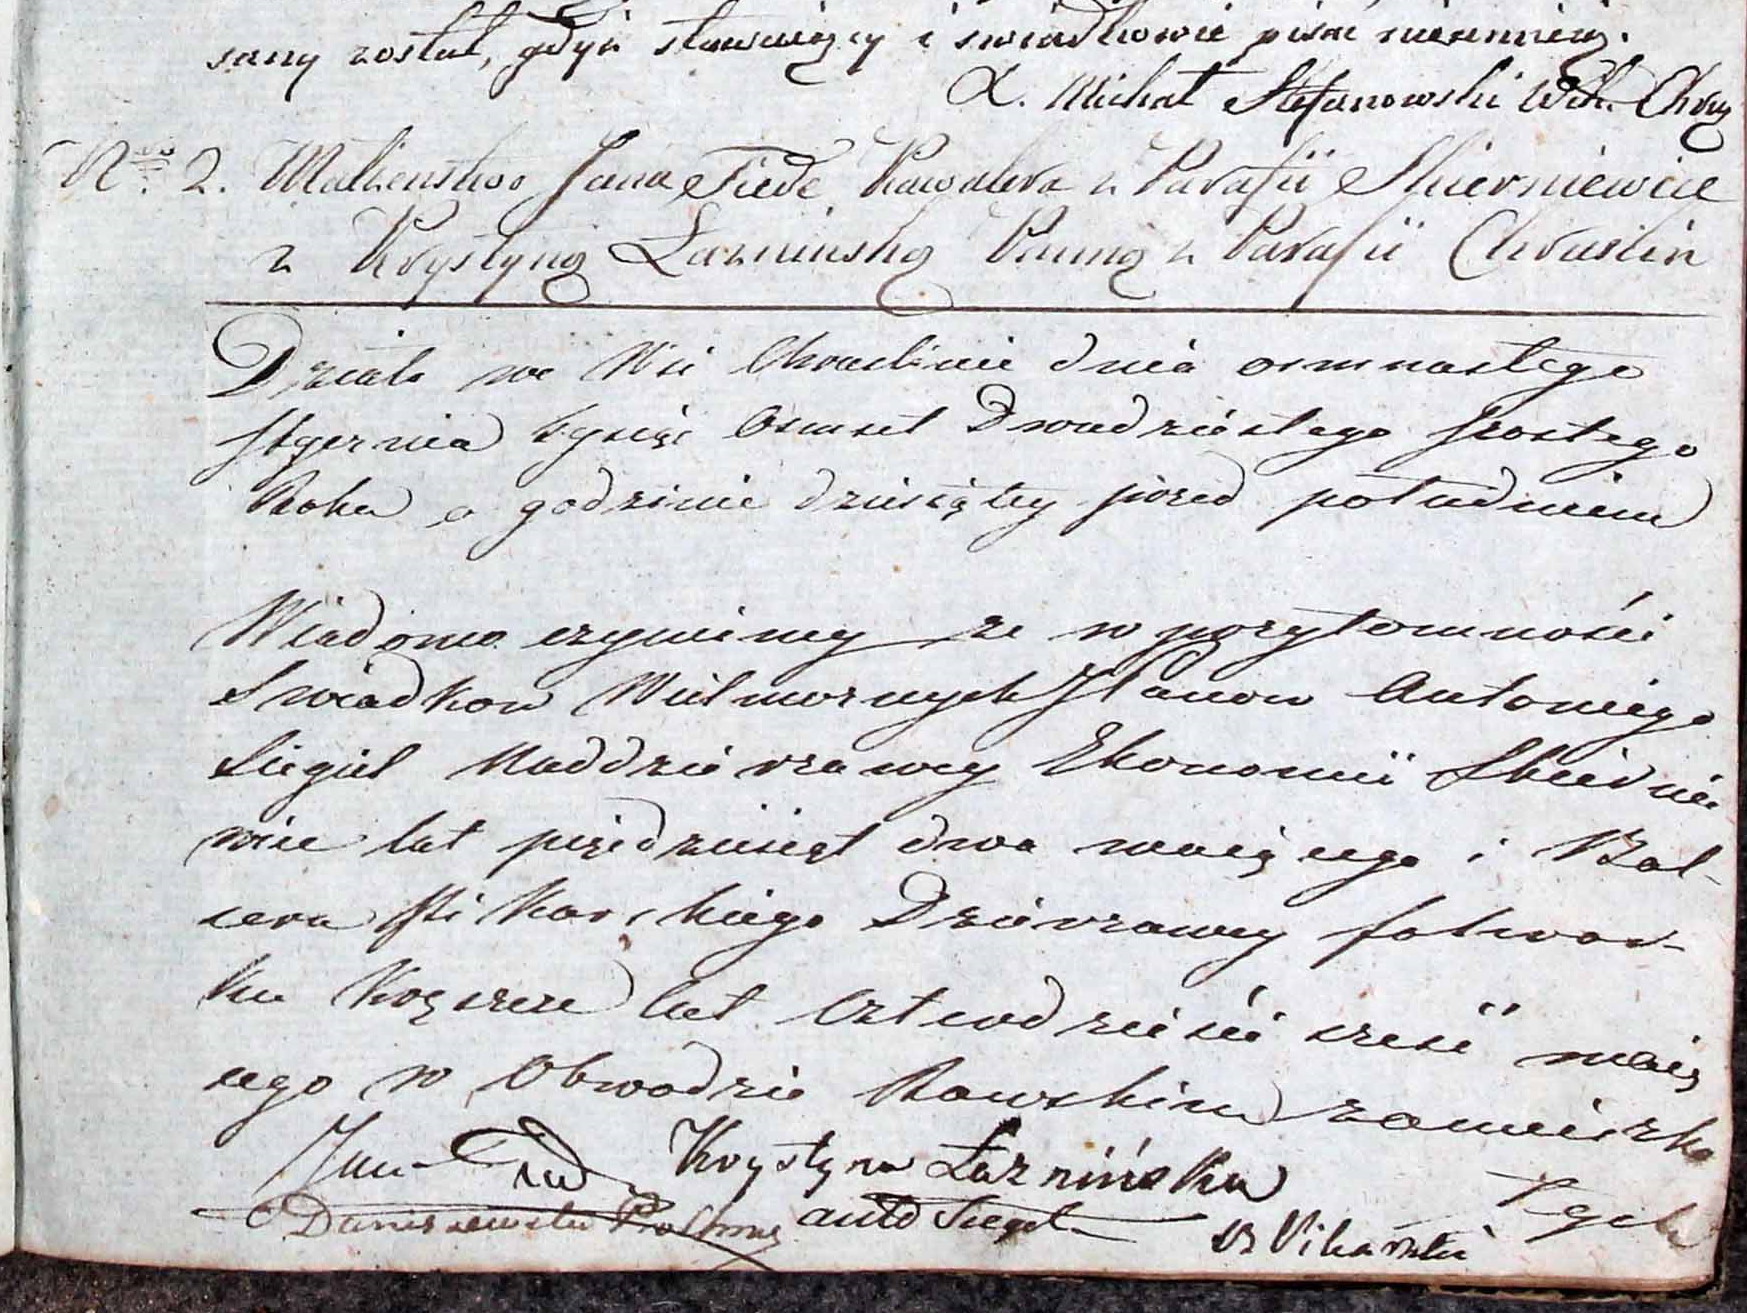 sany został, gdyż stawaiący i swiadkowie pisać nieumieią.
X. Michał Stefanowski Wik. Chruś
Nro 2. Małżenstwo Jana Tiede Kawalera z Parafii Skierniewice
z Krystyną Łazninską Panną z Parafii Chruślin
Działo we Wsi Chruslinie dnia osmnastego
stycznia tysiąc Osmset Dwudziestego szostego
Roku o godzinie dziesiątey przed południem
Wiadomo czyniemy ze w przytomności
Swiadkow Wielmoznych Panow Antoniego
Siegiel Naddzierzawcy Ekonomii Skiernie
wice lat pięcdziesiąt dwa maiącego i Bal-
cera Pikarskiego Dzierzawcy folwar-
ku lat czterdzieści sześć maią
cego w Obwodzie Rawskim zamieszka
Jan Tied Krystyna Łaznińska
Daniszewski Prob Anto Siegel
B Pikarski
łych